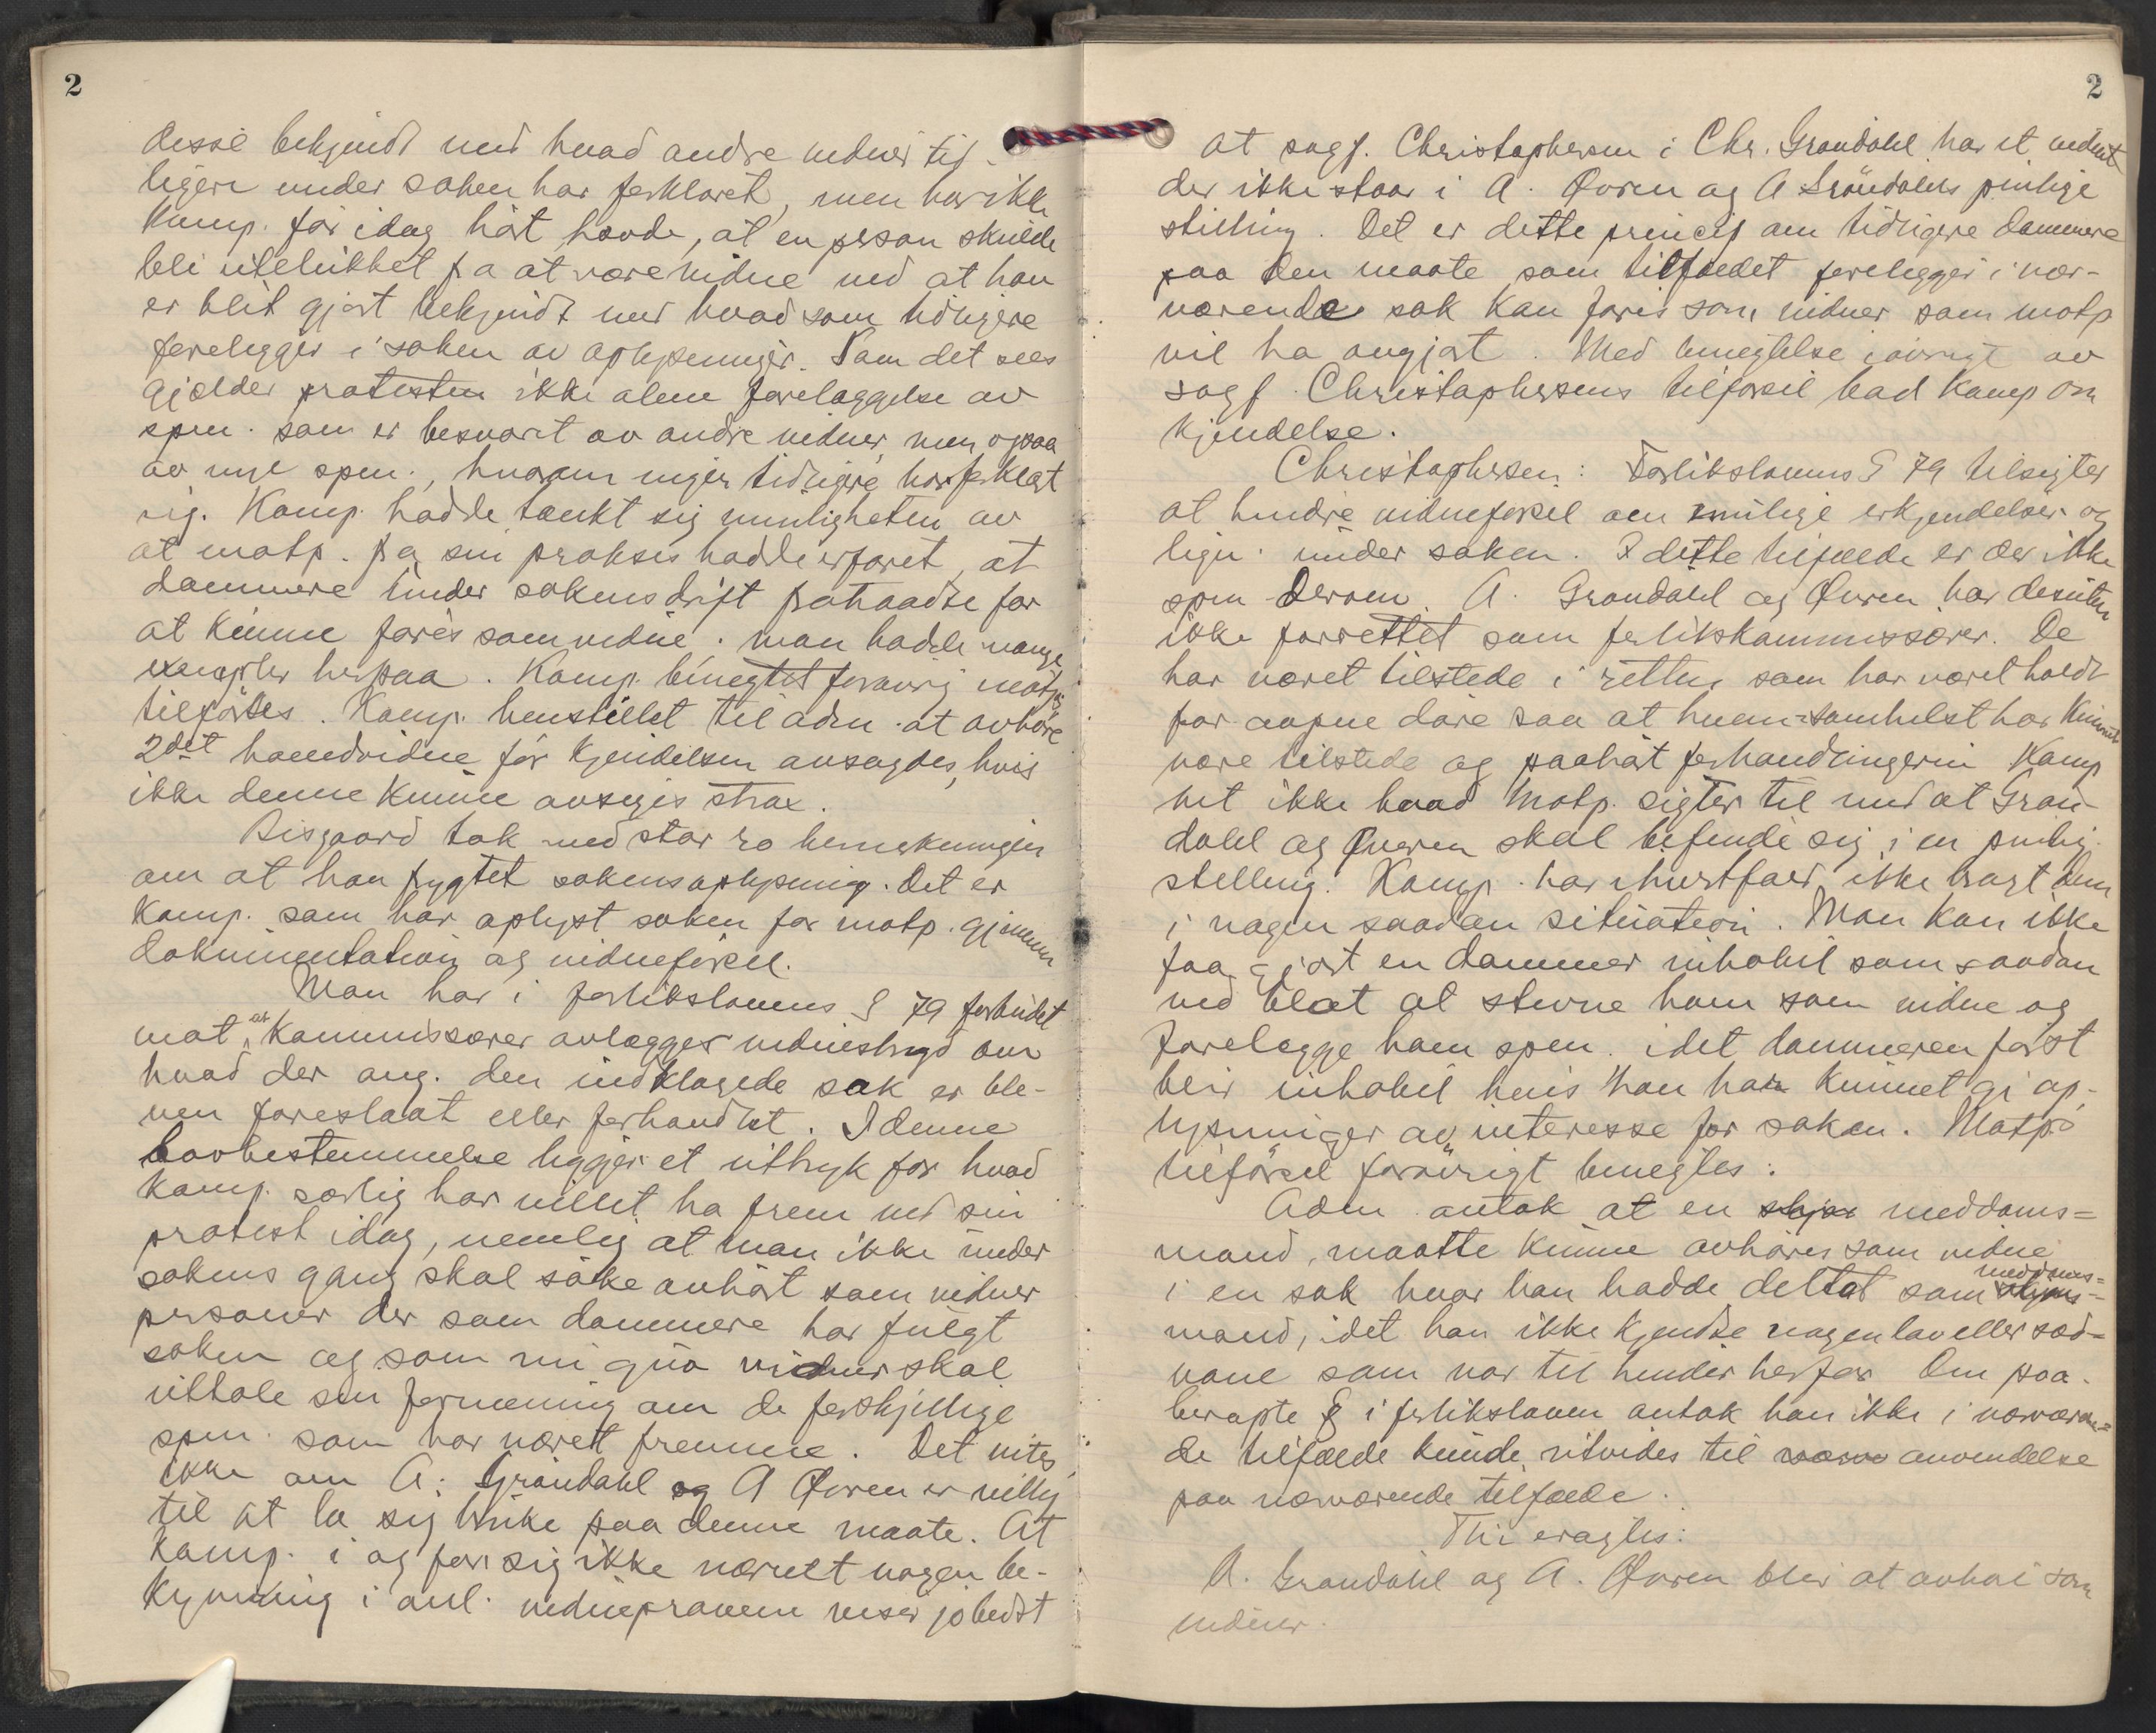 2
disse bekjendt med hvad andre vidner tid-
ligere under saken har forklaret, men har ikke
Komp. før idag hört hævde, at en person skulde
bli utelukket fra at være vidne ved at han
er blit gjort bekjendt med hvad som tidligere
foreligger i saken av oplysninger. Som det sees
gjælder protesten ikke alene foreleggelse av
spm. som er besvaret av andre vidner, men ogsaa
av nye spm., hvorom ingen tidligere har forklart
sig. Komp. hadde tænkt sig muligheten av
at motp. fra sin praksis hadde erfaret, at
dommere under sakens drift fratraadte for
at kunne føres som vidne; man hadde mange
exempler herpaa. Komp. benegtet forøvrig motp's
tilførsel. Komp. henstillet til adm. at avhöre
2det hovedvidne før kjendelsen avsagdes, hvis
ikke denne kunne avsiges strax.
Risgaard tok med stor ro bemerkningen
om at han frygtet sakens oplysning. Det er
Komp. som har oplyst saken for motp. gjennem
dokumentation og vidneførsel.
Man har i forlikslovens § 79 forbudet
mot at Kommissærer avlægger vidnesbyrd om
hvad der ang. den indklagede sak er ble-
ven foreslaat eller forhandlet. I denne
lovbestemmelse ligger et uttryk for hvad
Komp. særlig har villet ha frem ved sin
protest idag, nemlig at man ikke under
sakens gang skal söke avhört som vidner
personer der som dommere har fulgt
saken og som nu qua vidner skal
uttale sin formening om de forskjellige
spm. som har været fremme. Det vites
ikke om A. Gröndahl og A Øvren er villig
til at la sig bruke paa denne maate. At
Komp. i og for sig ikke nærret nogen be-
kymring i anl. vidneprovene viser jo bedst
2
at sagf. Christophersen i Chr. Grøndahl har et vidne
der ikke staar i A. Øvren og A Gröndahls pinlige
stilling. Det er dette princip om tidligere dommere
paa den maate som tilfældet foreligger i nær-
værende sak kan føres som vidner som motp
vil ha avgjort. Med benegtelse iøvrigt av
sagf. Christophersens tilførsel bad Komp om
kjendelse.
Christophersen: Forlikslovens § 79 tilsigter
at hindre vidneførsel om mulige erkjendelser og
lign. under saken. I dette tilfælde er der ikke
spm derom. A. Grøndahl og Øvren har desuten
ikke forrettet som forlikskommissærer. De
har været tilstede i retten som har været holdt
for aapne døre saa at hvem-somhelst har kunnet
være tilstede og paahørt forhandlingerne Komp
vet ikke hvad Motp. sigter til med at Grøn-
dahl og Øveren skal befinde sig i en pinlig
stelling. Komp. har ihvertfald ikke bragt dem
i nogen saadan situation. Man kan ikke
faa gjort en dommer inhabil som saadan
ved blot at stevne ham som vidne og
forelægge ham spm. idet dommeren først
blir inhabil hvis han har kunnet gi op-
lysninger av interesse for saken. Motp's
tilførsel forøvrigt benegtes.
Adm antok at en skjøn meddoms=
mand, maatte kunne avhøres som vidne
i en sak hvor han hadde deltat som meddoms=
mand, idet han ikke kjendte nogen lov eller sæd-
vane som var til hinder herfor Den paa-
beropte § i forliksloven antok han ikke i nærværen=
de tilfælde kunde utvides til anvendelse
paa nærværende tilfælde.
Thi eragtes:
A. Grøndahl og A. Øvren blir at avhøre som
vidner.